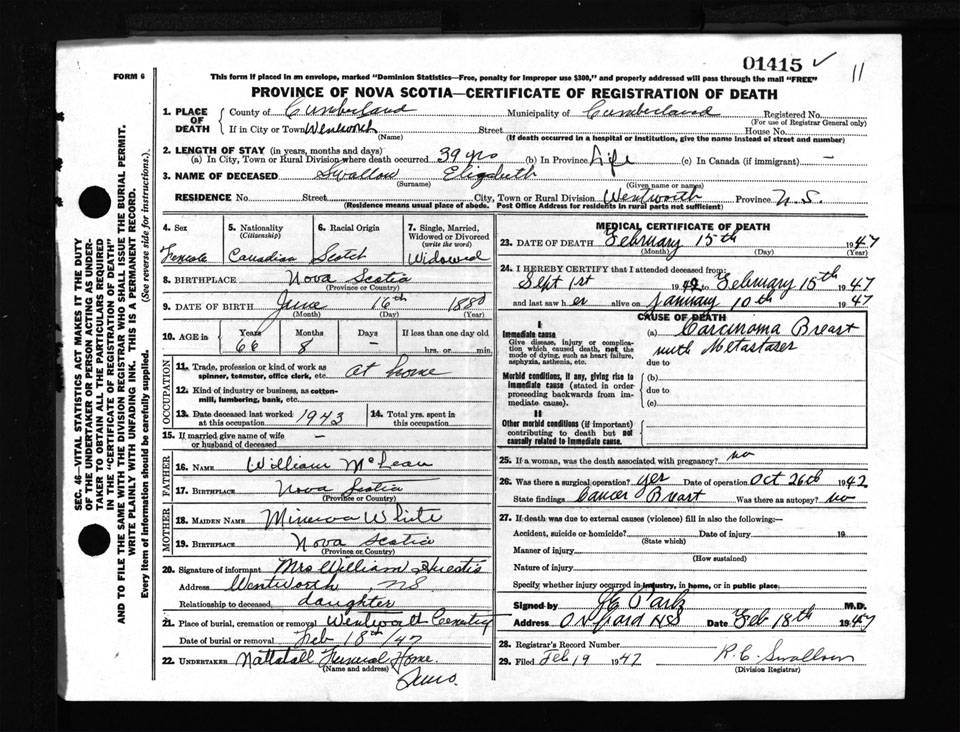 01415 ✓
11
FORM 6
This form if placed in an envelope, marked "Dominion Statistics—Free, penalty for improper use $300," and properly addressed will pass through the mail "FREE"
PROVINCE OF NOVA SCOTIA—CERTIFICATE OF REGISTRATION OF DEATH
1. PLACE OF DEATH
County of Cumberland Municipality of Cumberland Registered No.
(For use of Registrar General only)
If in City or Town Wentworth Street House No.
(Name) (If death occurred in a hospital or institution, give the name instead of street and number)
2. LENGTH OF STAY (in years, months and days)
(a) In City, Town or Rural Division where death occurred 39 yrs (b) In Province Life (c) In Canada (if immigrant) —
3. NAME OF DECEASED Swallow Elizabeth
(Surname) (Given name or names)
RESIDENCE No. Street City, Town or Rural Division Wentworth Province N.S.
(Residence means usual place of abode. Post Office Address for residents in rural parts not sufficient)
4. Sex
Female
5. Nationality
(Citizenship)
Canadian
6. Racial Origin
Scotch
7. Single, Married, Widowed or Divorced
(write the word)
Widowed
8. BIRTHPLACE Nova Scotia
(Province or Country)
9. DATE OF BIRTH June 16th 1880
(Month) (Day) (Year)
10. AGE in Years Months Days If less than one day old
66 8 — hrs. or min.
OCCUPATION
11. Trade, profession or kind of work as spinner, teamster, office clerk, etc. at home
12. Kind of industry or business, as cotton-mill, lumbering, bank, etc.
13. Date deceased last worked at this occupation 1943
14. Total yrs. spent in this occupation
15. If married give name of wife or husband of deceased —
FATHER
16. NAME William McLean
17. BIRTHPLACE Nova Scotia
(Province or Country)
MOTHER
18. MAIDEN NAME Minerva White
19. BIRTHPLACE Nova Scotia
(Province or Country)
20. Signature of informant Mrs William Huestis
Address Wentworth NS
Relationship to deceased daughter
21. Place of burial, cremation or removal Wentworth Cemetery
Date of burial or removal Feb 18th/47
22. UNDERTAKER Nattatall Funeral Home
(Name and address)
MEDICAL CERTIFICATE OF DEATH
23. DATE OF DEATH February 15th 1947
(Month) (Day) (Year)
24. I HEREBY CERTIFY that I attended deceased from:
Sept 1st 1942 to February 15th 1947
and last saw h er alive on January 10th 1947
CAUSE OF DEATH
I
Immediate cause
Give disease, injury or complication which caused death, not the mode of dying, such as heart failure, asphyxia, asthenia, etc.
(a) Carcinoma Breast
with Metastases
due to
Morbid conditions, if any, giving rise to immediate cause (stated in order proceeding backwards from immediate cause).
(b)
due to
(c)
II
Other morbid conditions (if important) contributing to death but not causally related to immediate cause.
25. If a woman, was the death associated with pregnancy? no
26. Was there surgical operation? yes Date of operation Oct 26th 1942
State findings Cancer Breast Was there autopsy? no
27. If death was due to external causes (violence) fill in also the following:—
Accident, suicide or homicide? Date of injury 19
(State which)
Manner of injury
(How sustained)
Nature of injury
Specify whether injury occurred in industry, in home, or in public place
Signed by M.D.
Address Oxford NS Date Feb 18th 1947
28. Registrar's Record Number
29. Filed Feb 19 1947 R. C. Swallow
(Division Registrar)
SEC. 46—VITAL STATISTICS ACT MAKES IT THE DUTY
OF THE UNDERTAKER OR PERSON ACTING AS UNDER-
TAKER TO OBTAIN ALL THE PARTICULARS REQUIRED
IN THE "CERTIFICATE OF REGISTRATION OF DEATH"
AND TO FILE THE SAME WITH THE DIVISION REGISTRAR WHO SHALL ISSUE THE BURIAL PERMIT.
WRITE PLAINLY WITH UNFADING INK. THIS IS A PERMANENT RECORD.
Every item of information should be carefully supplied. (See reverse side for instructions.)